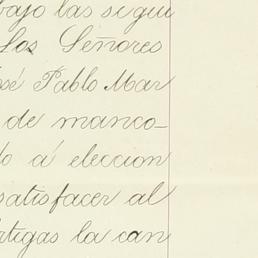 bajo las sigui
Los Señores
osé Pablo Mar
de manco-
do á eleccion
satisfacer al
rtigas la can